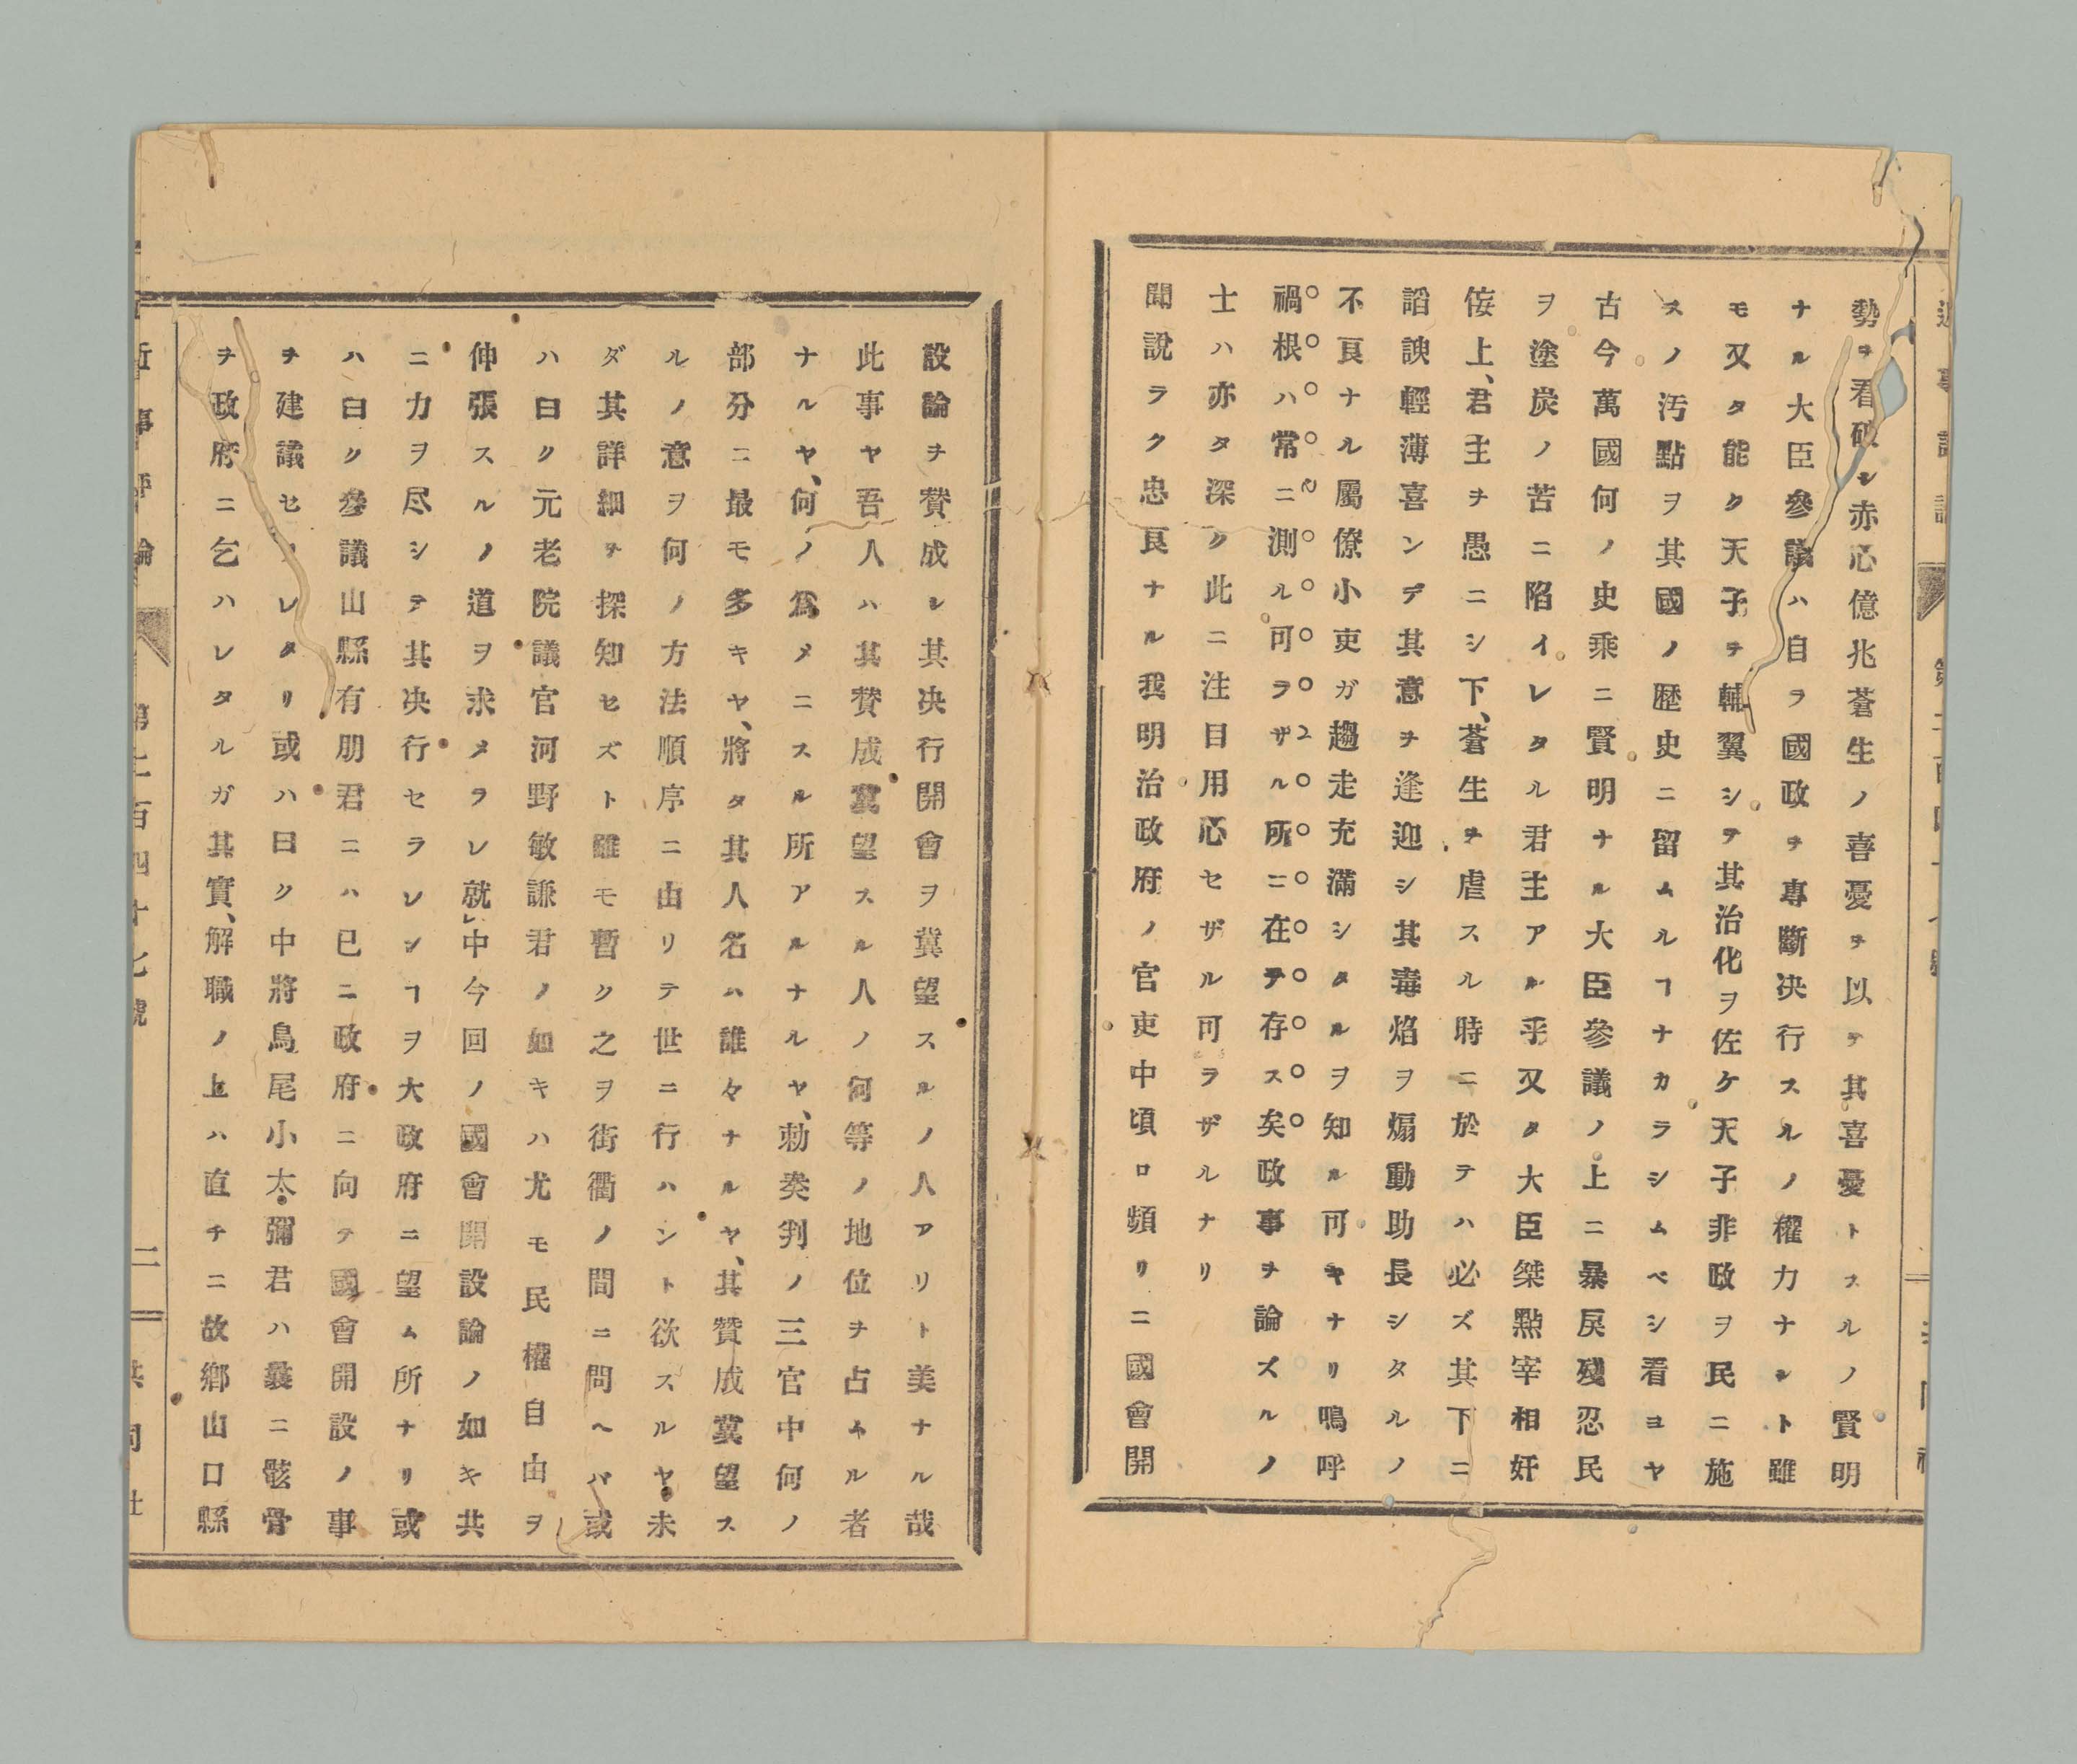 勢ヲ看破シ赤心億兆蒼生ノ喜憂ヲ以テ其喜憂トスルノ賢明
ナル大臣參議ハ自ラ國政ヲ專斷决行スルノ權力ナシト雖
モ又タ能ク天子ヲ輔翼シテ其治化ヲ佐ケ天子非政ヲ民ニ施
スノ汚點ヲ其國ノ歴史ニ留ムルヿナカラシムベシ看ヨヤ
古今萬國何ノ史乘ニ賢明ナル大臣參議ノ上ニ暴戻殘忍民
ヲ塗炭ノ苦ニ陷イレタル君主アル乎又タ大臣桀黠宰相奸
侫上、君主ヲ愚ニシ下、蒼生ヲ虐スル時ニ於テハ必ズ其下ニ
諂諛輕薄喜ンデ其意ヲ逢迎シ其毒焰ヲ煽動助長シタルノ
不良ナル屬僚小吏ガ趨走充滿シタルヲ知ル可キナリ鳴呼
禍根ハ常ニ測ル可ラザル所ニ在テ存ス矣政事ヲ論ズルノ
士ハ亦タ深ク此ニ注目用心セザル可ラザルナリ
聞說ラク忠良ナル我明治政府ノ官吏中頃ロ頻リニ國會開
設論ヲ賛成シ其决行開會ヲ冀望スルノ人アリト美ナル哉
此事ヤ吾人ハ其賛成冀望スル人ノ何等ノ地位ヲ占ムル者
ナルヤ、何ノ爲メニスル所アルナルヤ、勅奏判ノ三官中何ノ
部分ニ最モ多キヤ、將タ其人名ハ誰々ナルヤ、其贊成冀望ス
ルノ意ヲ何ノ方法順序ニ由リテ世ニ行ハシト欲スルヤ未
ダ其詳細ヲ探知セズト雖モ暫ク之ヲ街衢ノ間ニ問ヘバ或
ハ曰ク元老院議官河野敏謙君ノ如キハ尤モ民權自由ヲ
伸張スルノ道ヲ求メラレ就中今回ノ國會開設論ノ如キ共
ニ力ヲ尽シテ其决行セラレンヿヲ大政府ニ望ム所ナリ或
ハ曰ク參議山縣有朋君ニハ已ニ政府ニ向テ國會開設ノ事
ヲ建議セラレタリ或ハ曰ク中將鳥尾小太彌君ハ曩ニ骸骨
ヲ政府ニ乞ハレタルガ其實、解職ノ上ハ直チニ故鄕山口縣
近事評論
第二百四十七號
二
共同社